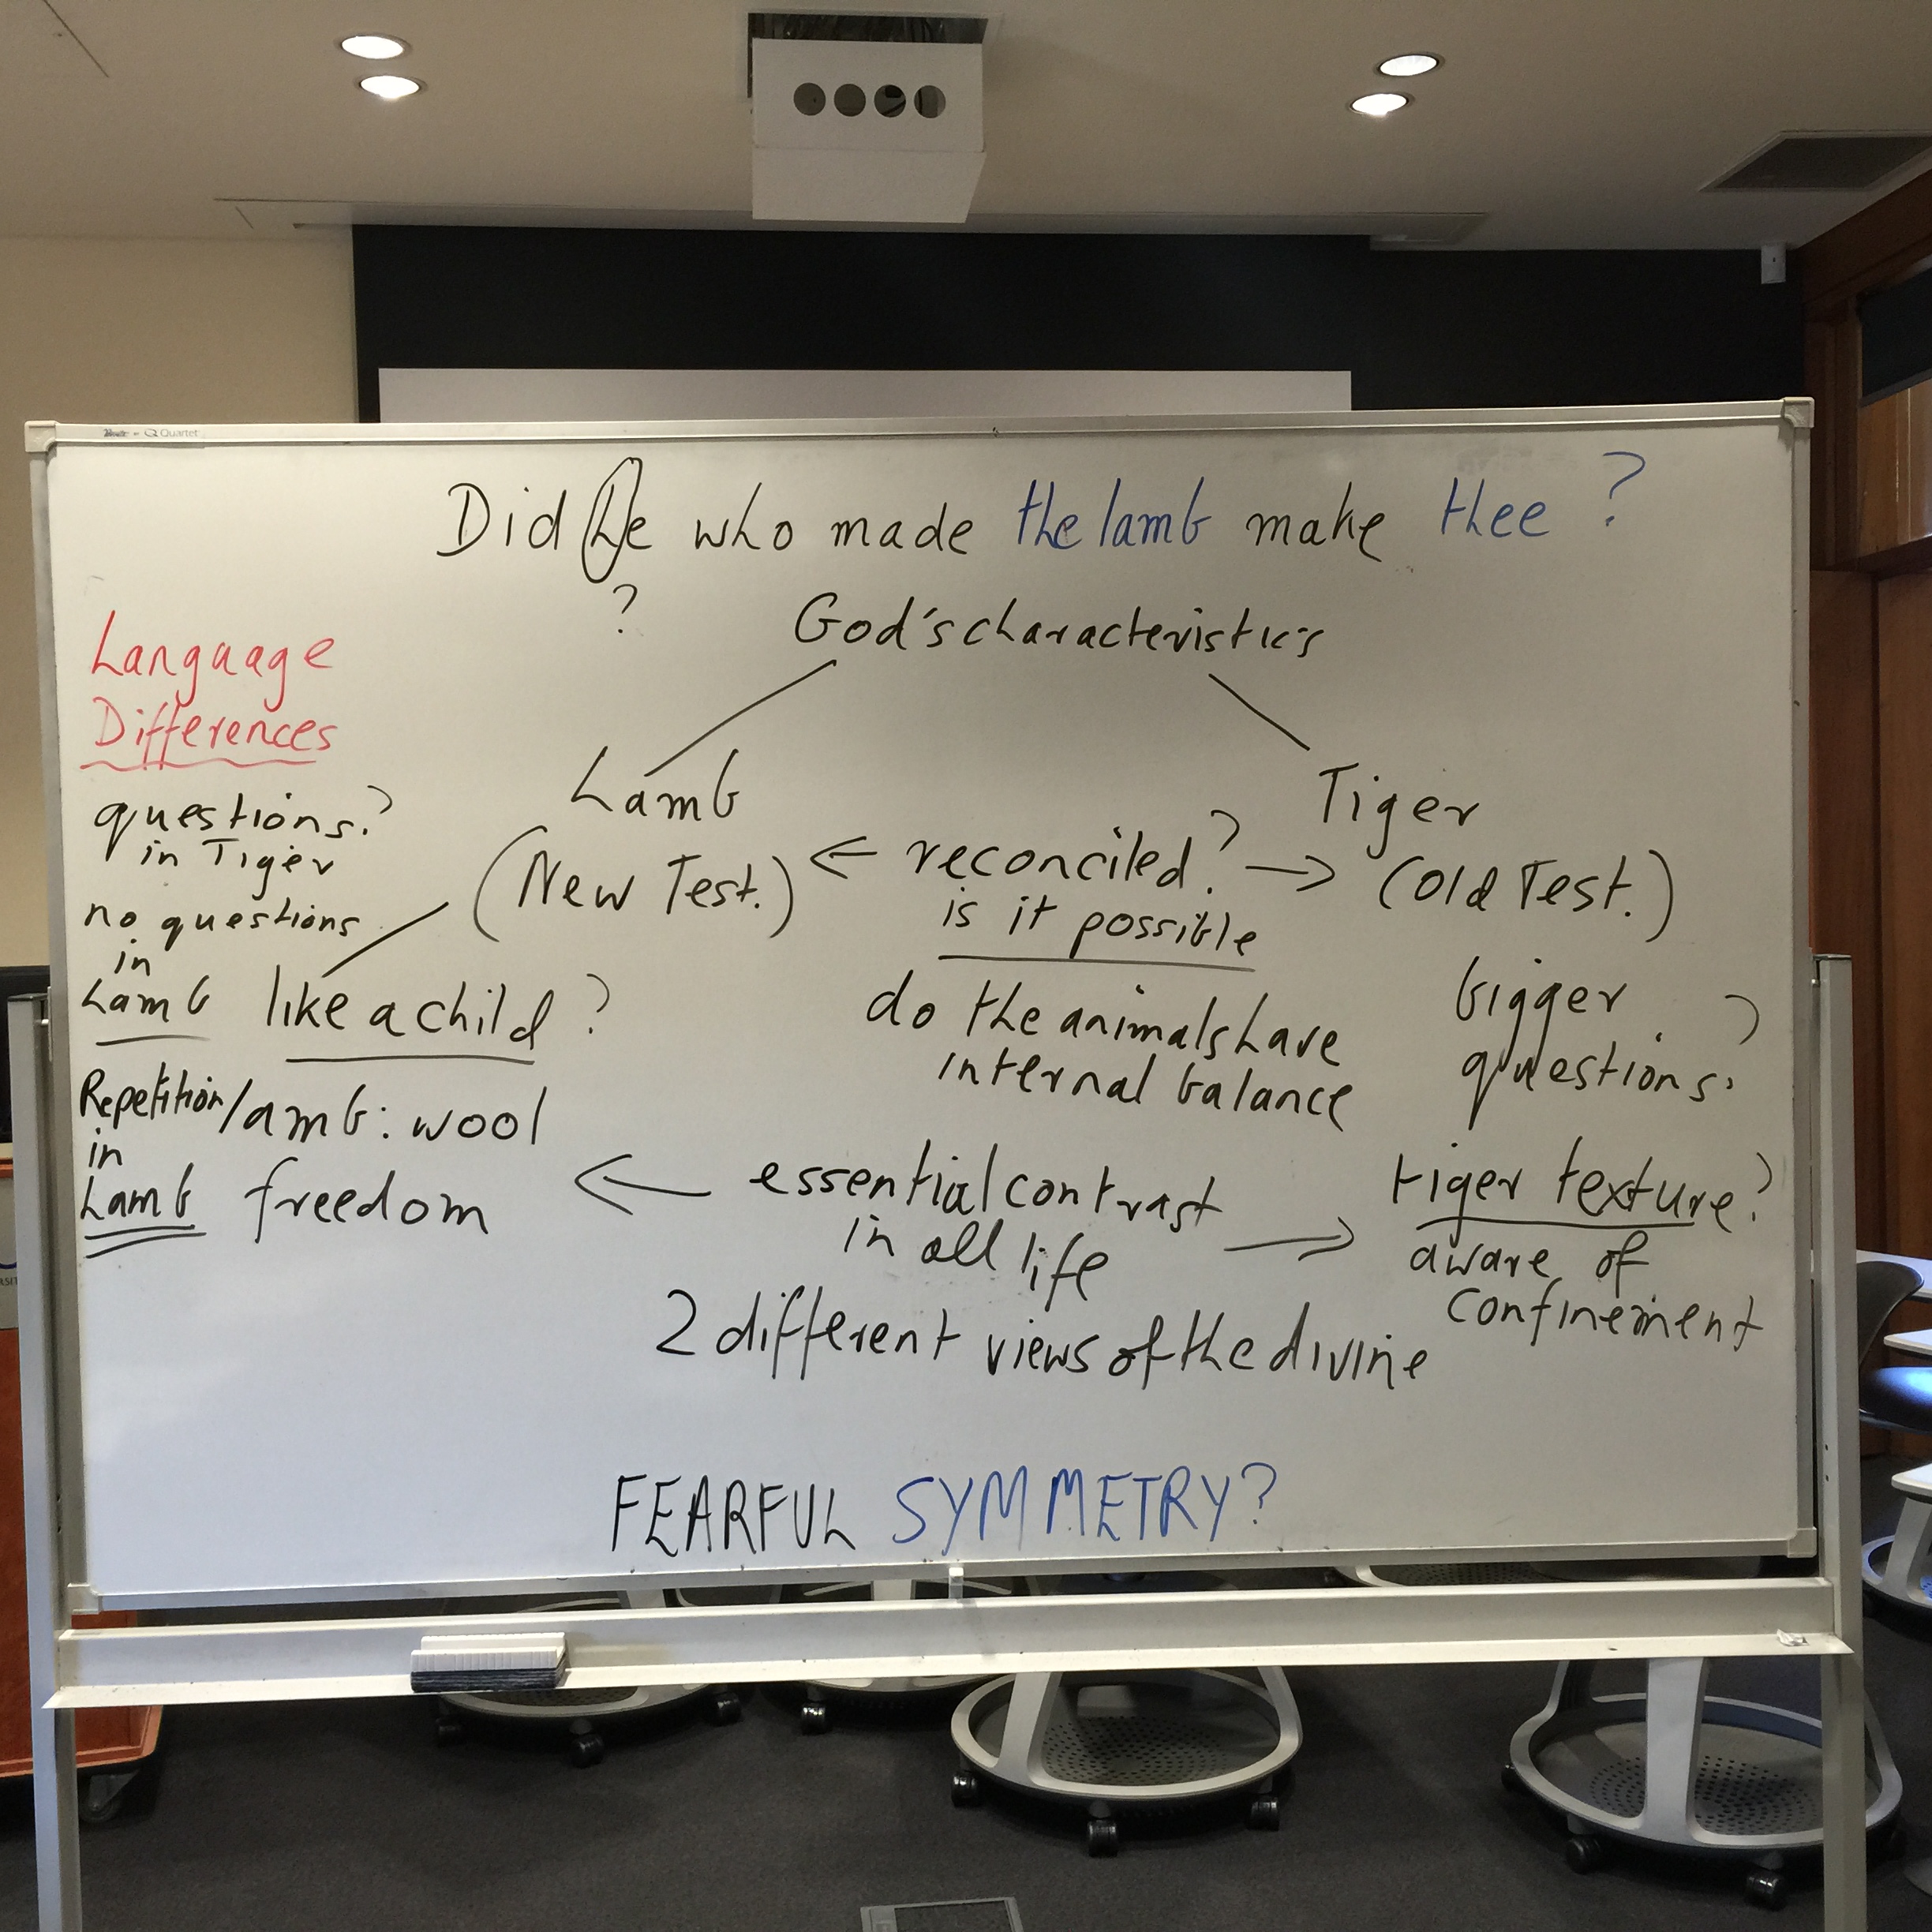 Quartet
Did he who made the lamb make thee ?
?
God's characteristics
Language
Differences
questions?
in Tiger
no questions
in
Lamb
Repetition
in
Lamb
Lamb
(New Test.)
like a child ?
lamb: wool
freedom
← reconciled? →
is it possible
do the animals have
internal balance
← essential contrast
in all life →
2 different views of the divine
Tiger
(Old Test.)
bigger
questions?
tiger texture?
aware of
confinement
FEARFUL SYMMETRY?